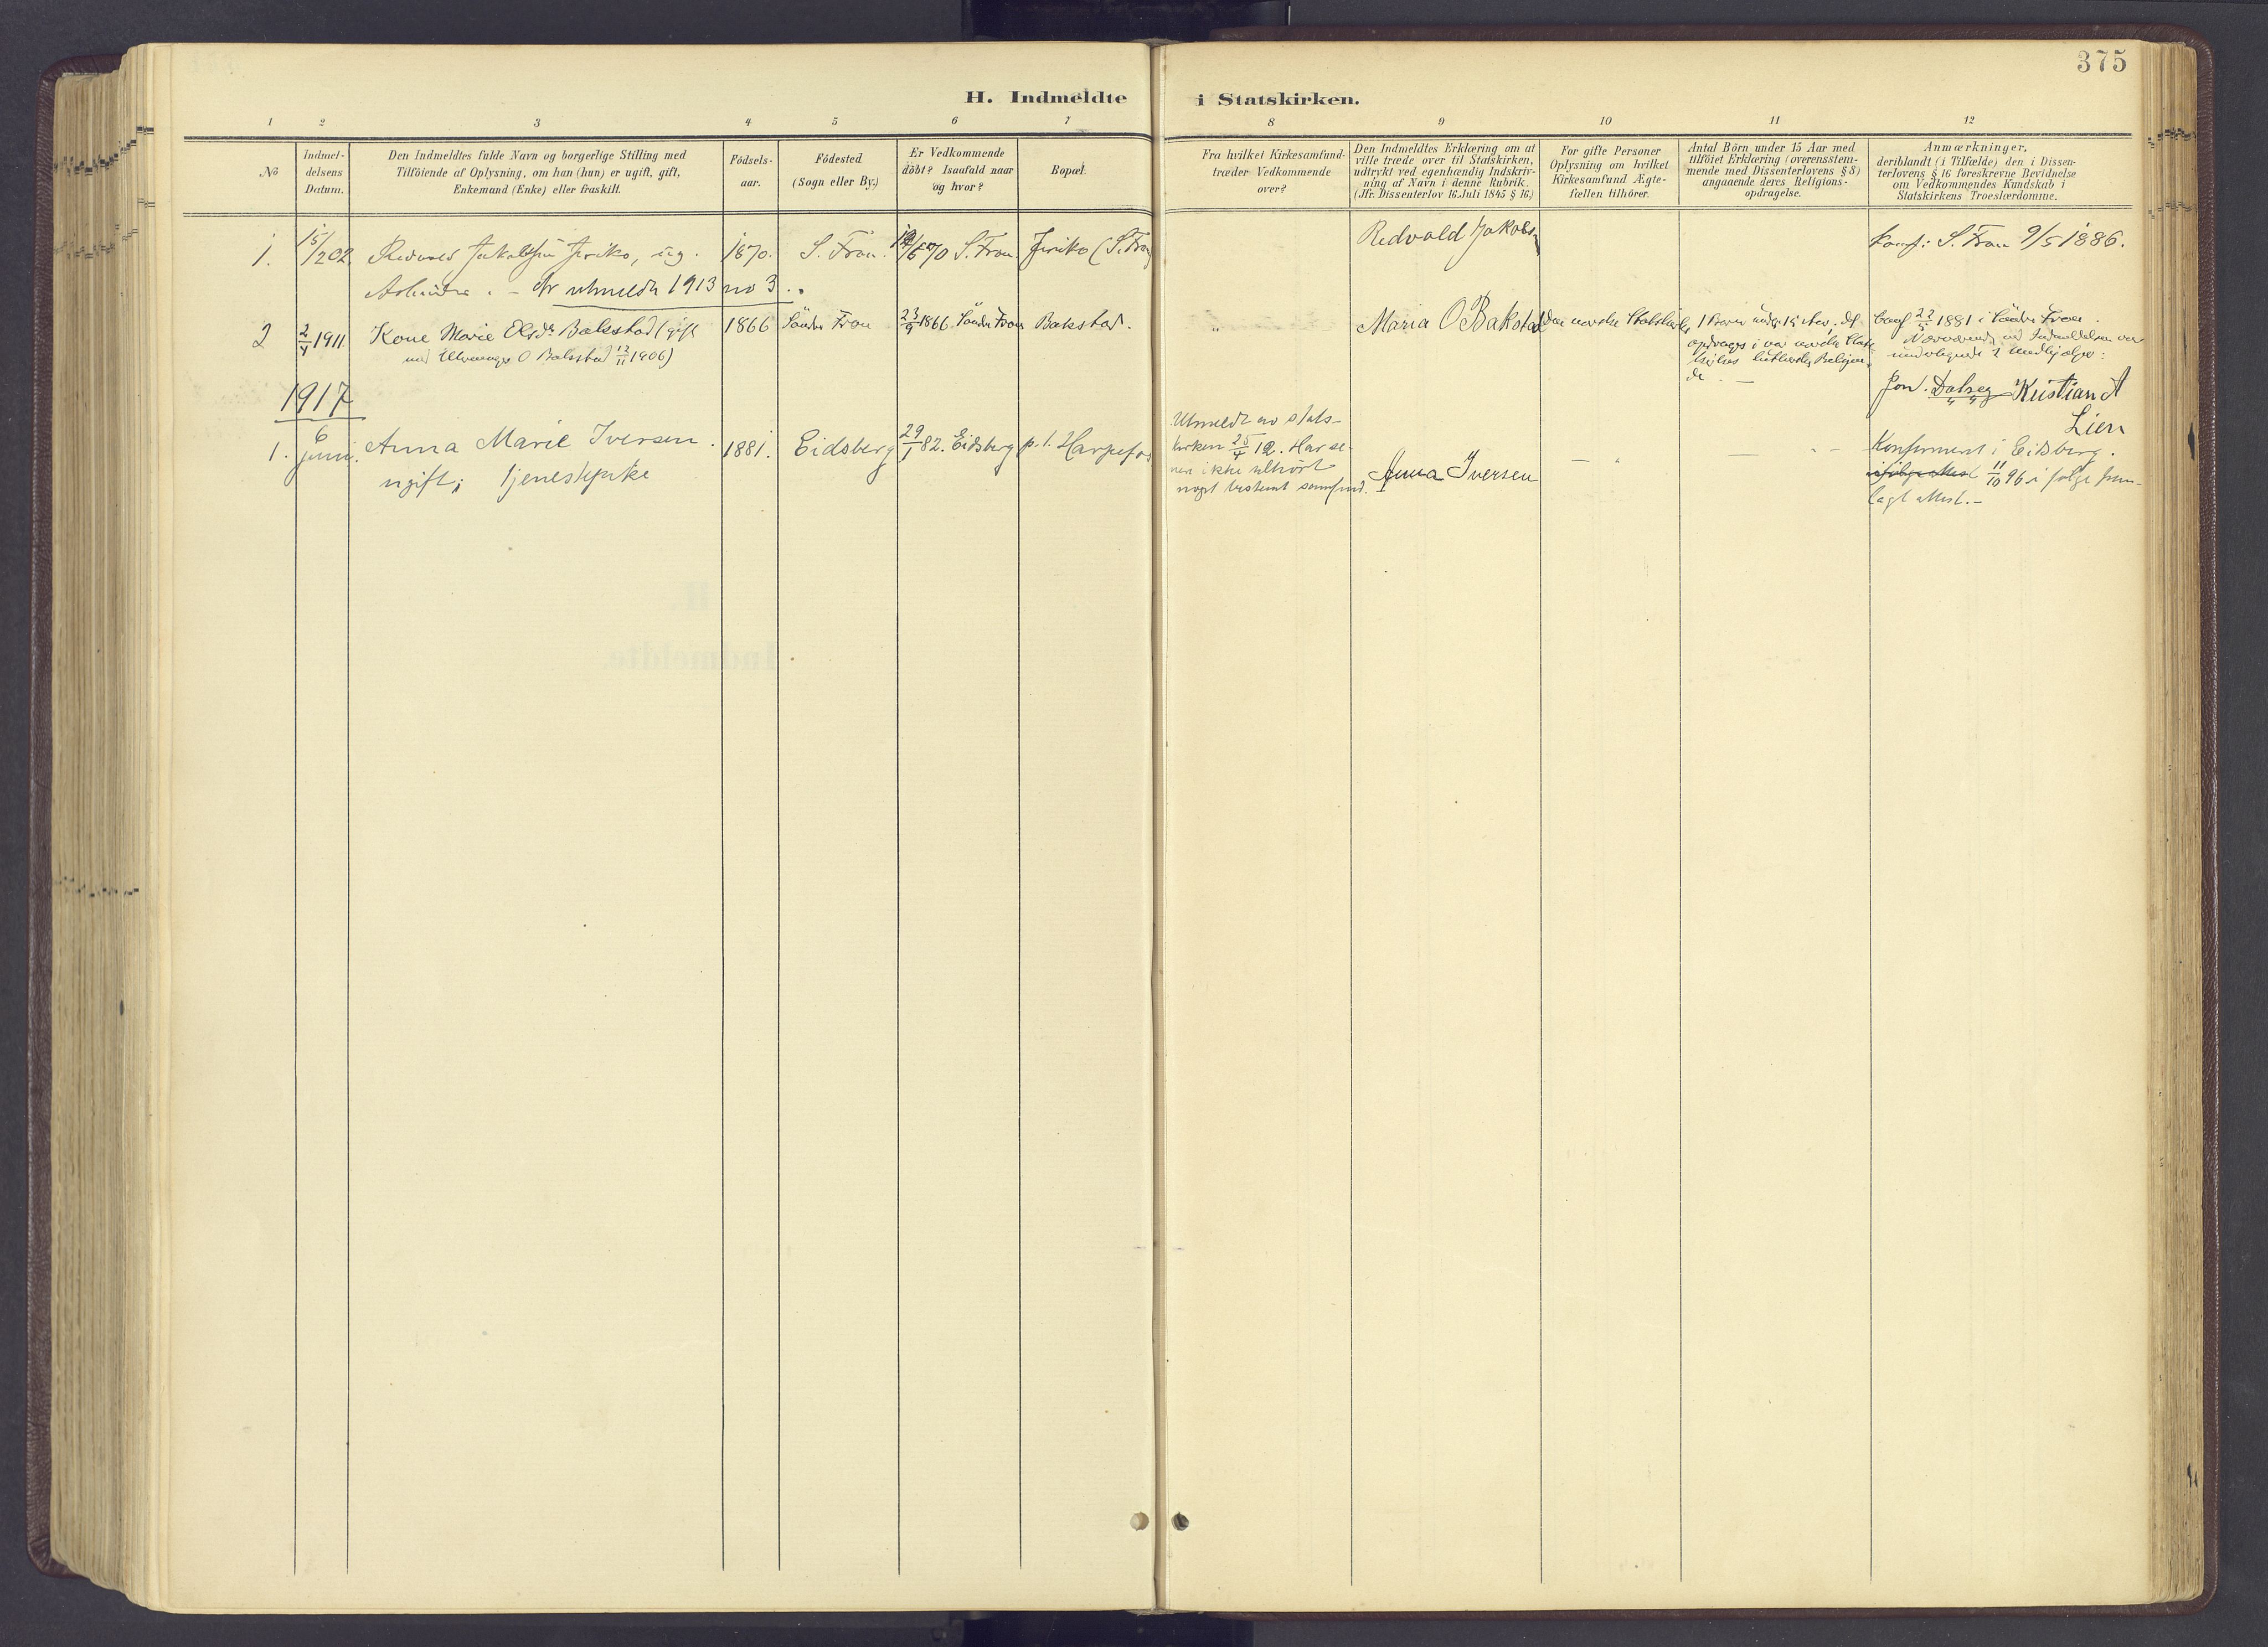 375
H. Indmeldte i Statskirken.
1 2 3 4 5 6 7 8 9 10 11 12
№
Indmel-
delsens
Datum.
Den Indmeldtes fulde Navn og borgerlige Stilling med
Tilföiende af Oplysning, om han (hun) er ugift, gift,
Enkemand (Enke) eller fraskilt.
Födsels-
aar.
Födested
(Sogn eller By.)
Er Vedkommende
döbt? Isaafald naar
og hvor?
Bopæl.
Fra hvilket Kirkesamfund
træder Vedkommende
over?
Den Indmeldtes Erklæring om at
ville træde over til Statskirken,
udtrykt ved egenhændig Indskriv-
ning af Navn i denne Rubrik.
(Jfr. Dissenterlov 16.Juli 1845 § 16.)
For gifte Personer
Oplysning om hvilket
Kirkesamfund Ægte-
fællen tilhörer.
Antal Börn under 15 Aar med
tilföiet Erklæring (overensstem-
mende med Dissenterlovens § 8)
angaaende deres Religions-
opdragelse.
Anmærkninger,
deriblandt (i Tilfælde) den i Dissen-
terlovens § 16 foreskrevne Bevidnelse
om Vedkommendes Kundskab i
Statskirkens Troeslærdomme.
1.
15/2 02
Redvald Jakobsen Jeriko, ug.
utmeldt 1913 no 3.
1870.
S. Fron.
70 S. Fron.
Jeriko (S. Fron
Redvald Jakobs
Konf: S. Fron 9/5 1886.
2
2/4 1911
Kone Marie Olsdr Bakstad (gift
med O Bakstad 12/11 1906)
1866
Söndre Fron
23/9 1866. Söndre Fron
Bakstad.
"
Maria O Bakstad
Den norske Statskirke
1 Barn under 15 Aar, der
opdrages i
Conf 22/5 1881 i Söndre Fron.
Jon. Dalseg Kristian A
Lien
1917
1.
6
juni.
Anna Marie Iversen.
ugift; tjenestepike
1881.
Eidsberg
29/1 82. Eidsberg
p. t. Harpefos
Utmeldt av stats-
kirken 25/4 12. Har se-
nere ikke tilhört
noget bestemt samfund.
Anna Iversen
Konfirmert i Eidsberg.
11/10 96 i følge frem-
lagt attest.-